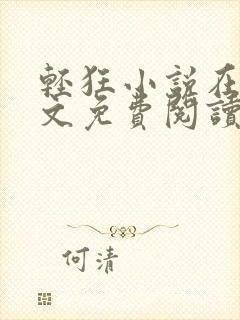 輕狂小說在
文免費閱讀
何清